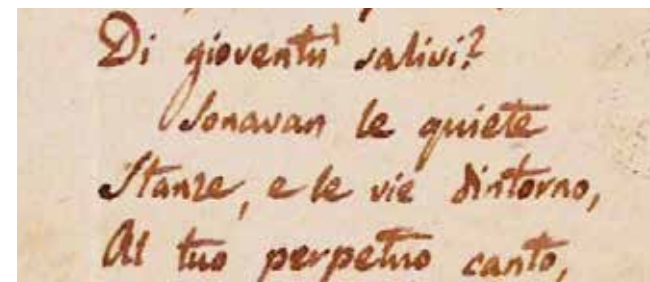 Di gioventù salivi?
Sonavan le quiete
Stanze, e le vie dintorno,
Al tuo perpetuo canto,